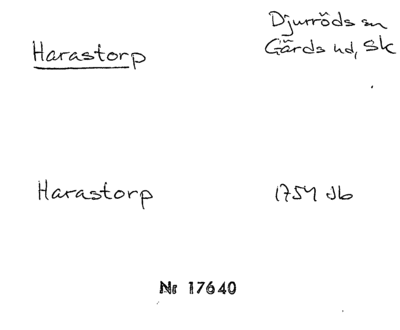 Harastorp
Djurröds sn
Gärds hd, Sk
Harastorp
1754 db
Nr 17640